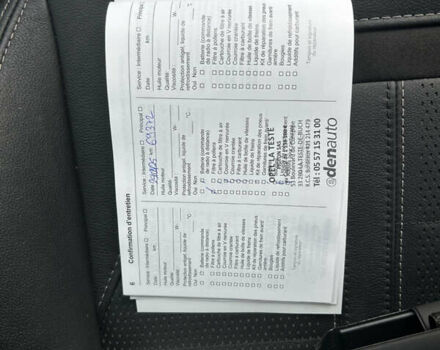 6 Confirmation d'entretien
Service : Intermédiaire ☐ Principal ☐
Date km
Huile moteur
Qualité
Viscosité W-
Protection antigel, liquide de
refroidissement °C
Oui Non
☐ ☐ Batterie (commande
de radio à distance)
☐ ☐ Filtre à pollens
☐ ☐ Cartouche de filtre à air
☐ ☐ Courroie en V nervurée
☐ ☐ Courroie crantée
☐ ☐ Filtre à carburant
☐ ☐ Huile de boîte de vitesses
☐ ☐ Liquide de freins
☐ ☐ Kit de réparation des pneus
☐ ☐ Garnitures de frein avant/
arrière
☐ ☐ Bougies
☐ ☐ Liquide de refroidissement
☐ ☐ Additifs pour carburant
Service : Intermédiaire ☐ Principal ☐
Date km 69372
Huile moteur
Qualité
Viscosité W-
Protection antigel, liquide de
refroidissement °C
Oui Non
Batterie (commande
de radio à distance)
Filtre à pollens
Cartouche de filtre à air
Courroie en V nervurée
Courroie crantée
Filtre à carburant
Huile de boîte de vitesses
Liquide de freins
Kit de réparation des pneus
Garnitures de frein avant/
OPEL LA TESTE
SAS
LA TESTE-DE-BUCH
Tél : 05 57 15 31 00
edenauto
Service : Intermédiaire ☐ Principal ☐
Date km
Huile moteur
Qualité
Viscosité W-
Protection antigel, liquide de
refroidissement °C
Oui Non
☐ ☐ Batterie (commande
de radio à distance)
☐ ☐ Filtre à pollens
☐ ☐ Cartouche de filtre à air
☐ ☐ Courroie en V nervurée
☐ ☐ Courroie crantée
☐ ☐ Filtre à carburant
☐ ☐ Huile de boîte de vitesses
☐ ☐ Liquide de freins
☐ ☐ Kit de réparation des pneus
☐ ☐ Garnitures de frein avant/
arrière
☐ ☐ Bougies
☐ ☐ Liquide de refroidissement
☐ ☐ Additifs pour carburant